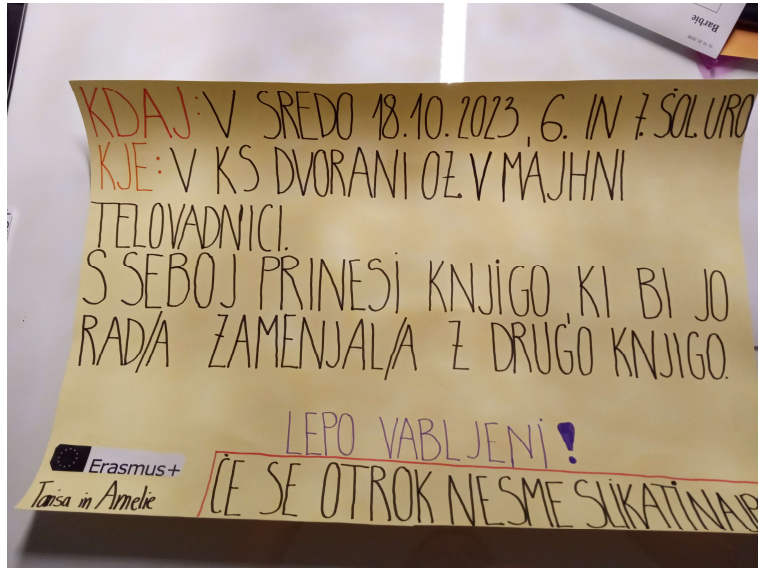 Barbie
KDAJ: V SREDO 18.10.2023, 6. IN 7. ŠOL. URO
KJE: V KS DVORANI OZ. V MAJHNI
TELOVADNICI.
S SEBOJ PRINESI KNJIGO, KI BI JO
RAD/A ZAMENJAL/A Z DRUGO KNJIGO.
LEPO VABLJENI!
Erasmus+
in Amelie
ČE SE OTROK NESME SLIKATI